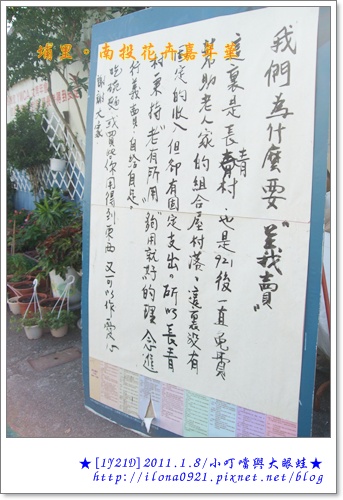 埔里。南投花卉嘉年華
我們為什麼要“義賣”
這裏是長青村，也是921後一直免費
幫助老人家的組合屋村落。這裏沒有
固定的收入但卻有固定支出。所以長青
村秉持“老有所用”“夠用就好”的理念進
行義賣自給自足。
吃碗麵或買些你用得到東西又可以作愛心
謝謝大家
★[1Y21D]2011.1.8/小叮噹與大眼蛙★
http://ilona0921.pixnet.net/blog